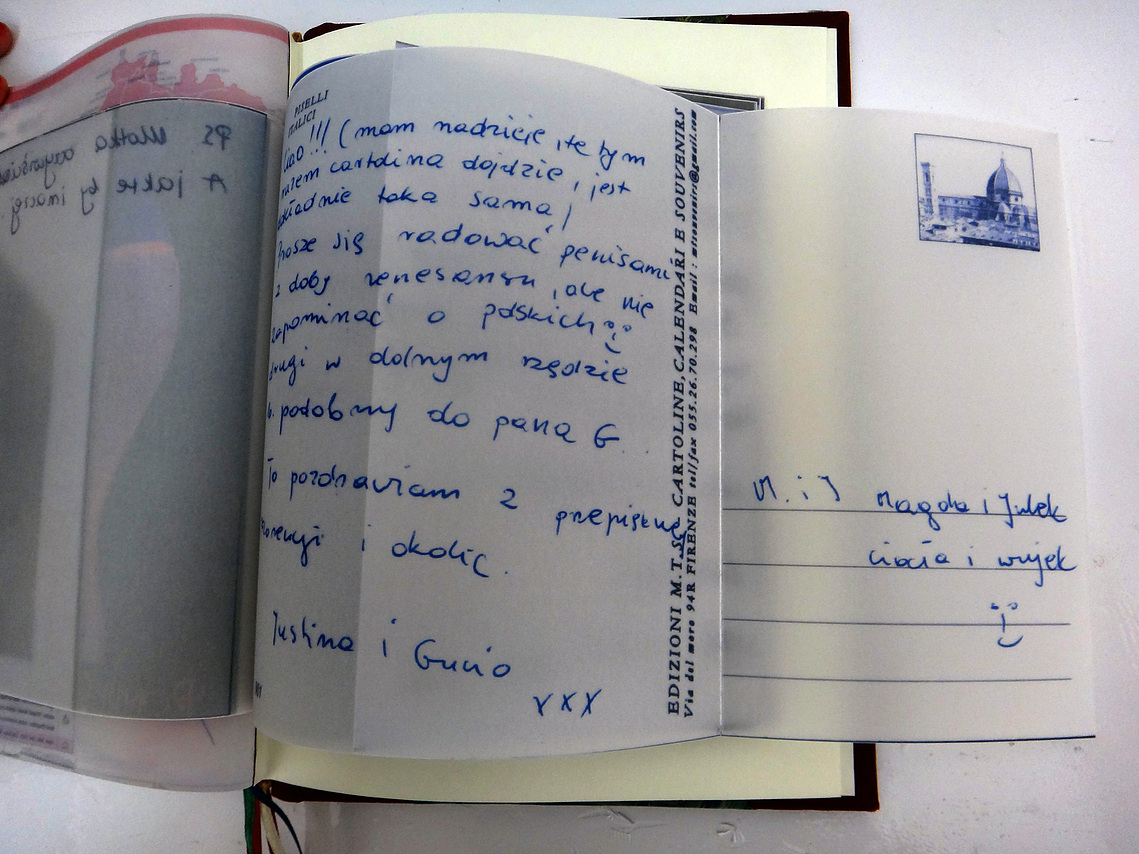 PISELLI
ITALICI
Ciao!!! (mam nadzieję, że tym
razem cartolina dojdzie, jest
dokładnie taka sama)
Proszę się radować penisami
z doby renesansu, ale nie
zapominać o polskich
drugi w dolnym rzędzie
b. podobny do pana G.
To pozdrawiam z przepięknej
Florencji i okolic.
Justina i Gucio
xxx
EDIZIONI M.T. CARTOLINE, CALENDARI E SOUVENIRS
Via del moro 94R FIRENZE tel/fax 055.26.70.298 Email: mtsouvenirs@gmail.com
M. i J Magda i Julek
ciocia i wujek
PS Matka
A jakże by inaczej.